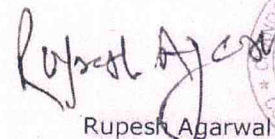 Rupesh Agarwal
Rupesh Agarwal